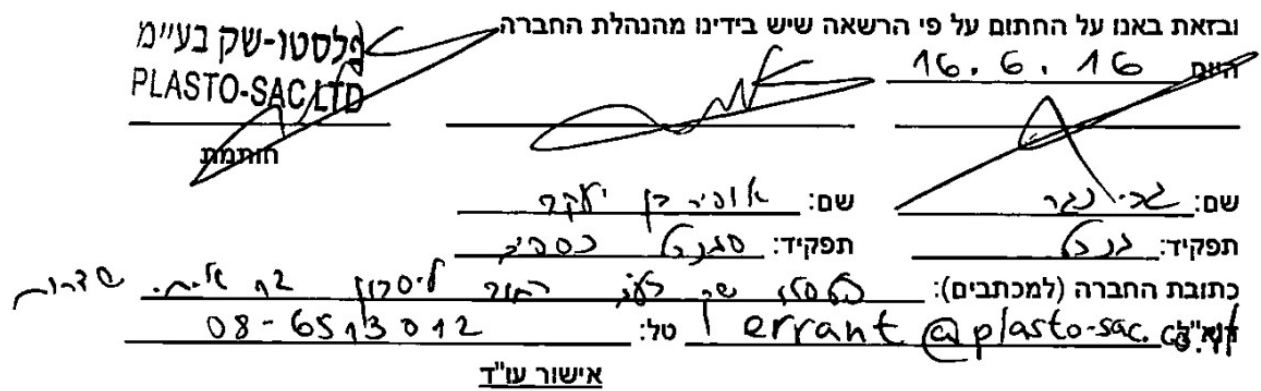 ובזאת באנו על החתום על פי הרשאה שיש בידינו מהנהלת החברה
היום 16.6.16
פלסטו-שק בע"מ
PLASTO-SAC LTD
חותמת
שם: גבי נגר שם: אופיר בן יעקב
תפקיד: מנכ"ל תפקיד: סמנכ"ל כספים
כתובת החברה (למכתבים): פלסטו שק בע"מ שדרות
דוא"ל errant@plasto-sac.co.il טל: 08-6513012
אישור עו"ד